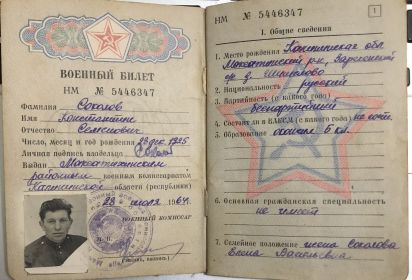 ВОЕННЫЙ БИЛЕТ
НМ № 5446347
Фамилия Соколов
Имя Константин
Отчество Семенович
Число, месяц и год рождения 28 дек. 1925
Личная подпись владельца
Выдан Максатихинским
районным военным комиссариатом
Калининской области (республики)
28 июля 1964 г.
ВОЕННЫЙ КОМИССАР
М. П.
(звание, подпись)
НМ № 5446347
1
I. Общие сведения
1. Место рождения Калининская обл.
Максатихинский р-н,
2. Национальность русский
3. Партийность (с какого года)
беспартийный
4. Состоит ли в ВЛКСМ (с какого года) не сост.
5. Образование окончил 5 кл.
6. Основная гражданская специальность
не имеет
7. Семейное положение жена Соколова
Елена Васильевна